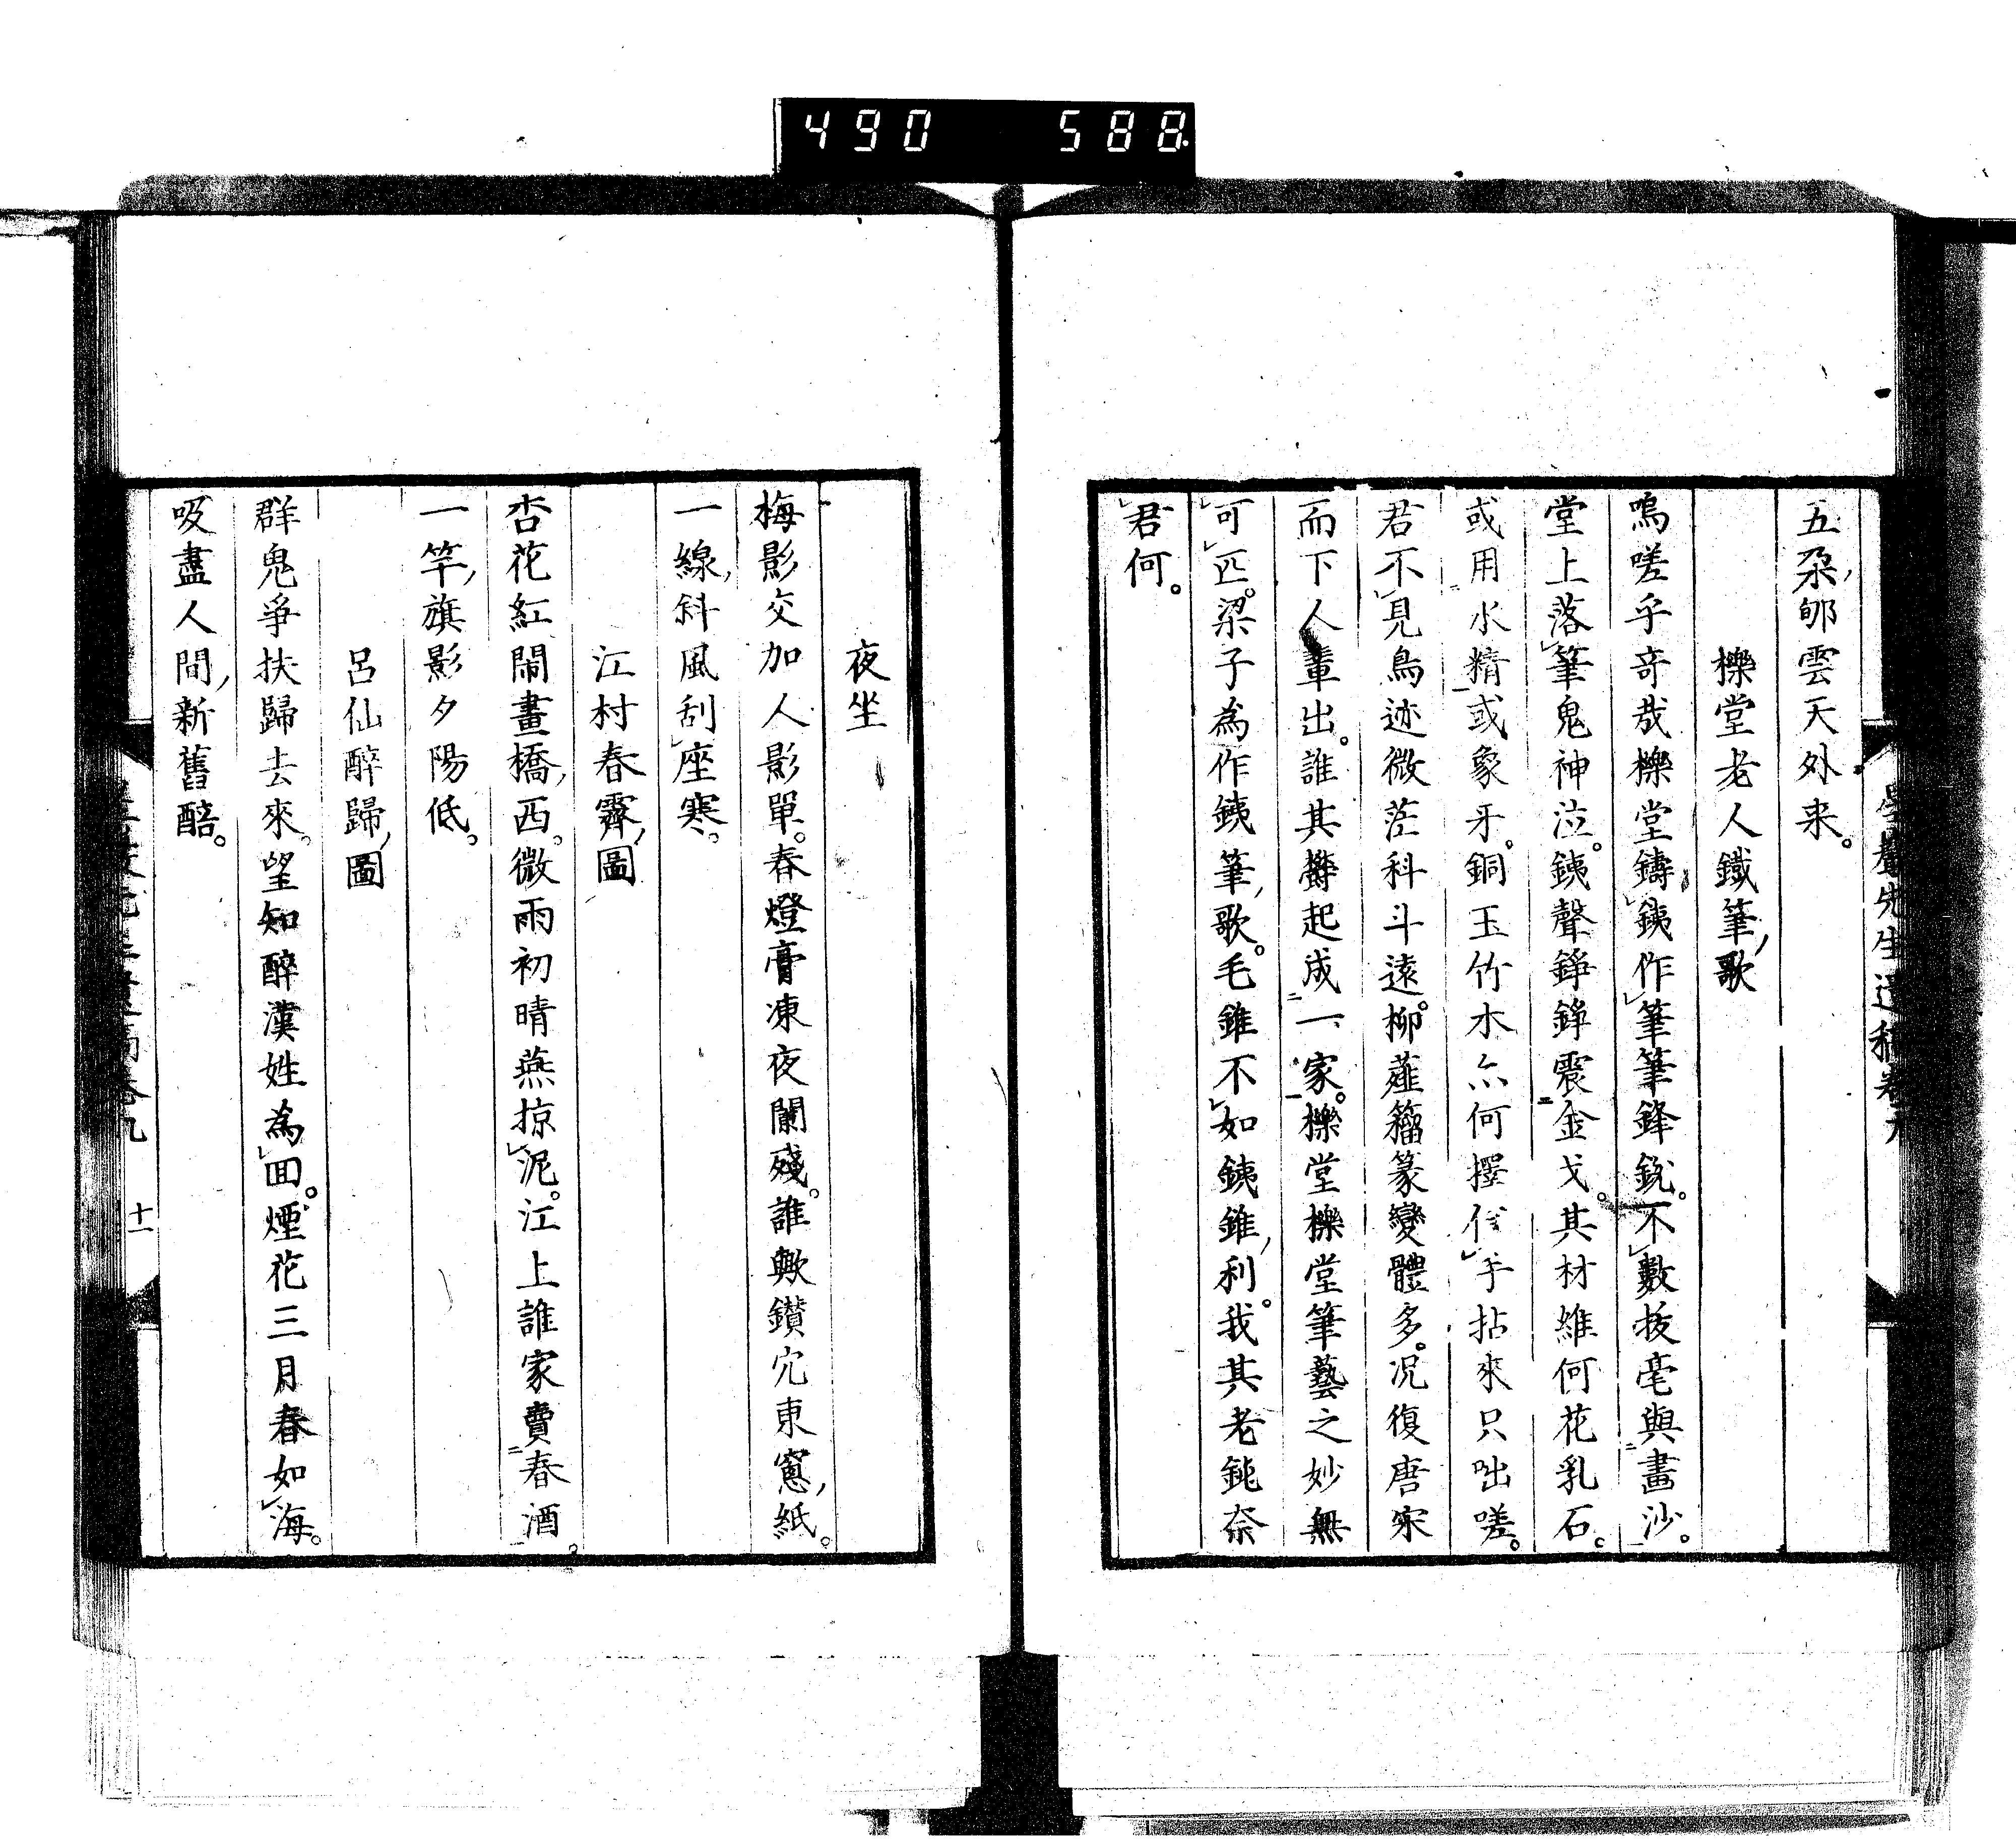 490 588
五朶郇雲天外来。
櫟堂老人鐵筆歌
嗚嗟乎奇哉櫟堂鑄銕作筆筆鋒銳。不數拔毫與畫沙。
堂上落筆鬼神泣。銕聲錚錚震金戈。其材維何花乳石。
或用水精或象牙。銅玉竹木亦何擇信手拈來只咄嗟。
君不見鳥迹微茫科斗遠。柳薤籀篆變體多。况復唐宋
而下人輩出。誰其欝起成一家。櫟堂櫟堂筆藝之妙無
可匹。梁子為作銕筆歌。毛錐不如銕錐利。我其老鈍奈
君何。
夜坐
梅影交加人影單。春燈膏凍夜闌殘。誰歟鑚穴東窻紙。
一線斜風刮座寒。
江村春霽圖
杏花紅鬧畫橋西。微雨初晴燕掠泥。江上誰家賣春酒
一竿旗影夕陽低。
呂仙醉歸圖
群鬼爭扶歸去來。望知醉漢姓為回。煙花三月春如海。
吸盡人間新舊醅。
十一